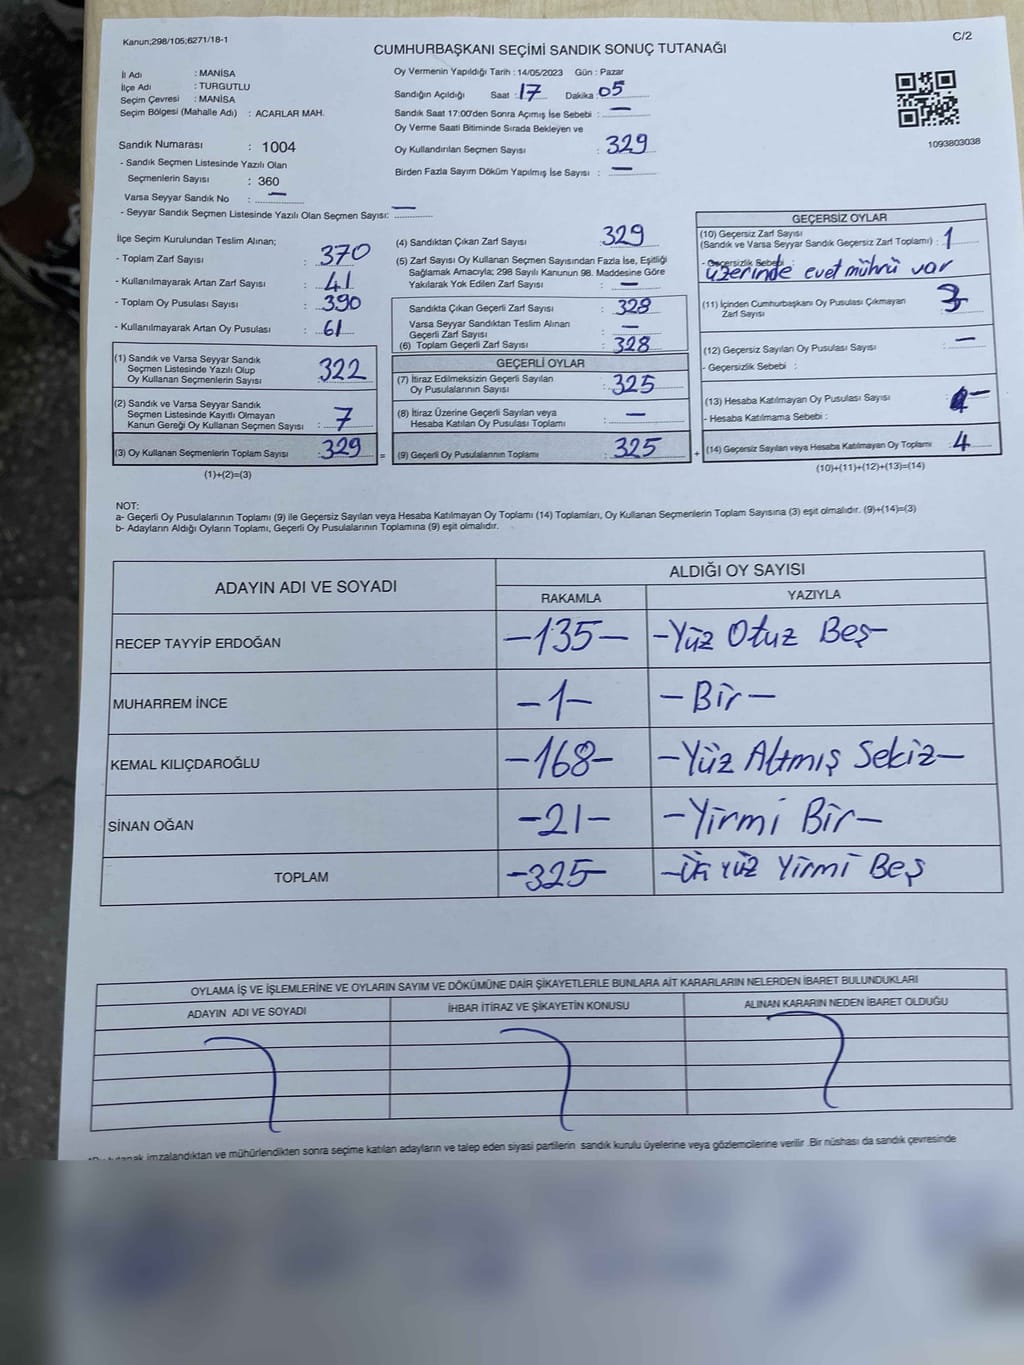 Kanun;298/105;6271/18-1
C/2
CUMHURBAŞKANI SEÇİMİ SANDIK SONUÇ TUTANAĞI
İl Adı : MANİSA
İlçe Adı : TURGUTLU
Seçim Çevresi : MANİSA
Seçim Bölgesi (Mahalle Adı) : ACARLAR MAH.
Sandık Numarası : 1004
- Sandık Seçmen Listesinde Yazılı Olan
Seçmenlerin Sayısı : 360
Varsa Seyyar Sandık No : —
- Seyyar Sandık Seçmen Listesinde Yazılı Olan Seçmen Sayısı: —
Oy Vermenin Yapıldığı Tarih : 14/05/2023 Gün : Pazar
Sandığın Açıldığı Saat : 17 Dakika : 05
Sandık Saat 17:00'den Sonra Açımış İse Sebebi : —
Oy Verme Saati Bitiminde Sırada Bekleyen ve
Oy Kullandırılan Seçmen Sayısı : 329
Birden Fazla Sayım Döküm Yapılmış İse Sayısı : —
1093803038
İlçe Seçim Kurulundan Teslim Alınan;
- Toplam Zarf Sayısı : 370
- Kullanılmayarak Artan Zarf Sayısı : 41
- Toplam Oy Pusulası Sayısı : 390
- Kullanılmayarak Artan Oy Pusulası : 61
(1) Sandık ve Varsa Seyyar Sandık
Seçmen Listesinde Yazılı Olup
Oy Kullanan Seçmenlerin Sayısı : 322
(2) Sandık ve Varsa Seyyar Sandık
Seçmen Listesinde Kayıtlı Olmayan
Kanun Gereği Oy Kullanan Seçmen Sayısı : 7
(3) Oy Kullanan Seçmenlerin Toplam Sayısı : 329
(1)+(2)=(3)
(4) Sandıktan Çıkan Zarf Sayısı : 329
(5) Zarf Sayısı Oy Kullanan Seçmen Sayısından Fazla İse, Eşitliği
Sağlamak Amacıyla; 298 Sayılı Kanunun 98. Maddesine Göre
Yakılarak Yok Edilen Zarf Sayısı : —
Sandıkta Çıkan Geçerli Zarf Sayısı : 328
Varsa Seyyar Sandıktan Teslim Alınan
Geçerli Zarf Sayısı : —
(6) Toplam Geçerli Zarf Sayısı : 328
GEÇERLİ OYLAR
(7) İtiraz Edilmeksizin Geçerli Sayılan
Oy Pusulalarının Sayısı : 325
(8) İtiraz Üzerine Geçerli Sayılan veya
Hesaba Katılan Oy Pusulası Toplamı : —
= (9) Geçerli Oy Pusulalarının Toplamı : 325 +
GEÇERSİZ OYLAR
(10) Geçersiz Zarf Sayısı
(Sandık ve Varsa Seyyar Sandık Geçersiz Zarf Toplamı) : 1
- Geçersizlik Sebebi :
üzerinde evet mührü var
(11) İçinden Cumhurbaşkanı Oy Pusulası Çıkmayan
Zarf Sayısı : 3
(12) Geçersiz Sayılan Oy Pusulası Sayısı : —
- Geçersizlik Sebebi :
(13) Hesaba Katılmayan Oy Pusulası Sayısı : —
- Hesaba Katılmama Sebebi :
(14) Geçersiz Sayılan veya Hesaba Katılmayan Oy Toplamı : 4
(10)+(11)+(12)+(13)=(14)
NOT:
a- Geçerli Oy Pusulalarının Toplamı (9) ile Geçersiz Sayılan veya Hesaba Katılmayan Oy Toplamı (14) Toplamları, Oy Kullanan Seçmenlerin Toplam Sayısına (3) eşit olmalıdır. (9)+(14)=(3)
b- Adayların Aldığı Oyların Toplamı, Geçerli Oy Pusulalarının Toplamına (9) eşit olmalıdır.
ADAYIN ADI VE SOYADI
ALDIĞI OY SAYISI
RAKAMLA YAZIYLA
RECEP TAYYİP ERDOĞAN -135- -Yüz Otuz Beş-
MUHARREM İNCE -1- -Bir-
KEMAL KILIÇDAROĞLU -168- -Yüz Altmış Sekiz-
SİNAN OĞAN -21- -Yirmi Bir-
TOPLAM -325- Yüz Yirmi Beş
OYLAMA İŞ VE İŞLEMLERİNE VE OYLARIN SAYIM VE DÖKÜMÜNE DAİR ŞİKAYETLERLE BUNLARA AİT KARARLARIN NELERDEN İBARET BULUNDUKLARI
ADAYIN ADI VE SOYADI İHBAR İTİRAZ VE ŞİKAYETİN KONUSU ALINAN KARARIN NEDEN İBARET OLDUĞU
tutanak imzalandıktan ve mühürlendikten sonra seçime katılan adayların ve talep eden siyasi partilerin sandık kurulu üyelerine veya gözlemcilerine verilir .Bir nüshası da sandık çevresinde